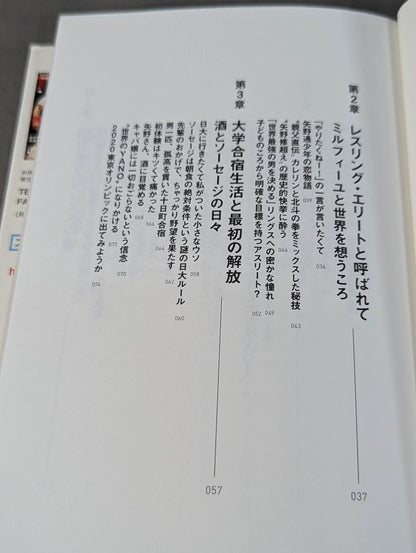 第2章 レスリング・エリートと呼ばれて
ミルフィーユと世界を想うころ 037
「やりたくねー!」の一言が言いたくて 036
矢野通少年の恋物語 039
親父直伝 カレリンと北斗の拳をミックスした秘技 043
“矢野修超え”の歴史的快挙に酔う 046
「世界最強の男を決める」リングスへの密かな憧れ 049
子どものころから明確な目標を持つアスリート? 052
第3章 大学合宿生活と最初の解放
酒とソーセージの日々 057
日大に行きたくて私がついた小さなウソ 058
ソーセージは朝食の絶対条件という謎の日大ルール 060
先輩のおかげで、ちゃっかり野望を果たす 062
男一匹、孤高を貫いた十日町合宿 064
初体験はキツくて痛かった
矢野さん、酒に目覚める 068
キャバ嬢には一切おごらないという信念 070
“世界のYANO”になりかける 072
2020東京オリンピックに出てみようか 074